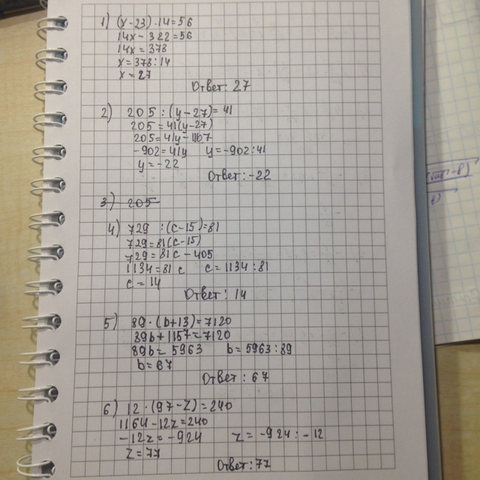 1) (x-23)·14=56
14x-322=56
14x=378
x=378:14
x=27
Ответ: 27
2) 205:(y-27)=41
205=41(y-27)
205=41y-1107
-902=41y y=-902:41
y=-22
Ответ: -22
3) 205
4) 729:(c-15)=81
729=81(c-15)
729=81c-405
1134=81c c=1134:81
c=14
Ответ: 14
5) 89·(b+13)=7120
89b+1157=7120
89b=5963 b=5963:89
b=67
Ответ: 67
6) 12·(97-z)=240
1164-12z=240
-12z=-924 z=-924:-12
z=77
Ответ: 77